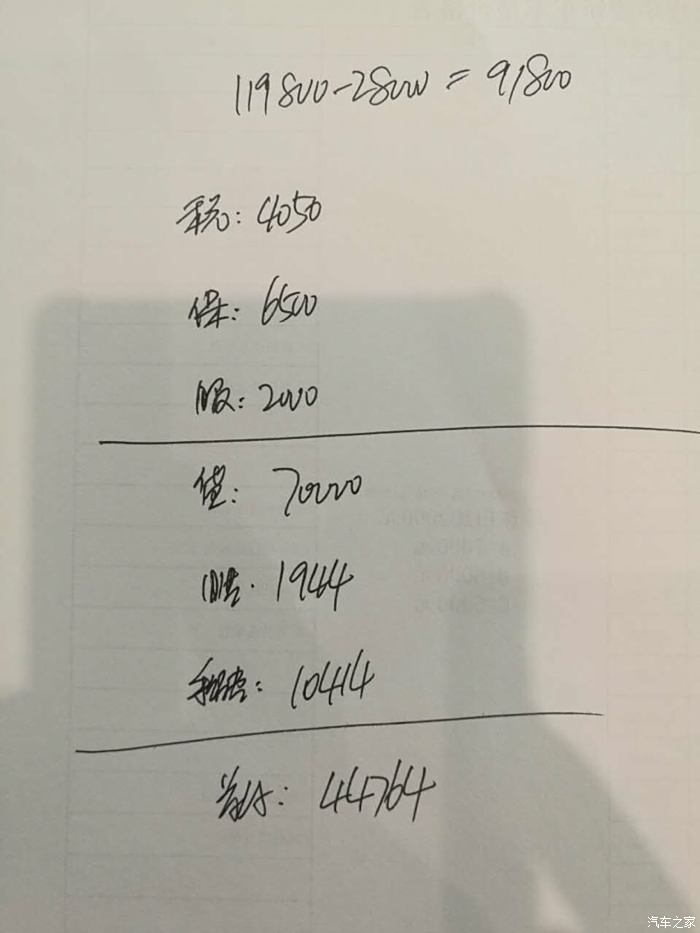 119800-28000=91800
税: 4050
保: 6500
服: 2000
贷: 70000
月供. 1944
利息: 10414
首付: 44764
汽车之家